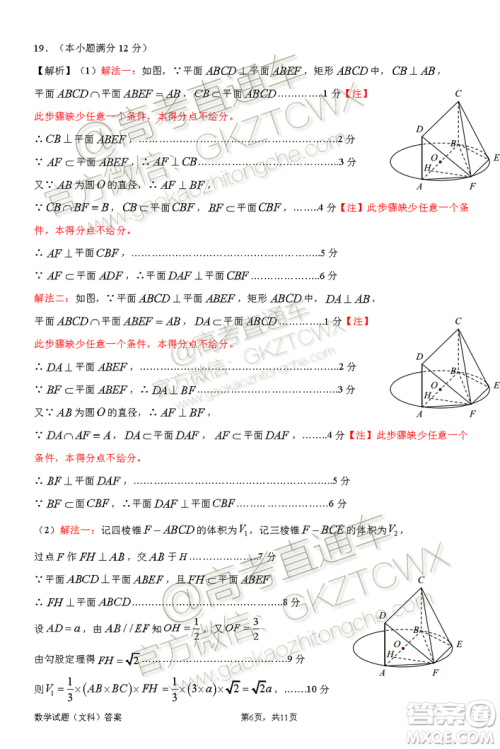 19．（本小题满分 12 分）
【解析】（1）解法一：如图，∵平面 ABCD⊥平面 ABEF，矩形 ABCD 中，CB⊥AB，
平面 ABCD∩平面 ABEF＝AB，CB⊂平面 ABCD…………1 分【注】
此步骤缺少任意一个条件，本得分点不给分。
∴ CB⊥平面 ABEF………………………………2 分
∵ AF⊂平面 ABEF，∴ AF⊥CB………………3 分
又∵ AB 为圆 O 的直径，∴ AF⊥BF，
∵ CB∩BF＝B，CB⊂平面 CBF，BF⊂平面 CBF，……4 分【注】此步骤缺少任意一个条
件，本得分点不给分。
∴ AF⊥平面 CBF，………………………………5 分
∵ AF⊂平面 ADF，∴平面 DAF⊥平面 CBF………6 分
解法二：如图，∵平面 ABCD⊥平面 ABEF，矩形 ABCD 中，DA⊥AB，
平面 ABCD∩平面 ABEF＝AB，DA⊂平面 ABCD…………1 分【注】
此步骤缺少任意一个条件，本得分点不给分。
∴ DA⊥平面 ABEF………………………………2 分
∵ BF⊂平面 ABEF，∴ BF⊥DA………………3 分
又∵ AB 为圆 O 的直径，∴ AF⊥BF，
∵ DA∩AF＝A，DA⊂平面 DAF，AF⊂平面 DAF，……4 分【注】此步骤缺少任意一个
条件，本得分点不给分。
∴ BF⊥平面 DAF………………………………5 分
∵ BF⊂平面 CBF，∴平面 DAF⊥平面 CBF………………6 分
（2）解法一：记四棱锥 F－ABCD 的体积为V₁，记三棱锥 F－BCE 的体积为V₂，
过点 F 作 FH⊥AB，交 AB 于 H………………7 分
∵平面 ABCD⊥平面 ABEF，且 FH⊂平面 ABEF
∴ FH⊥平面 ABCD………………………8 分
设 AD＝a，由 AB//EF 知 OH＝1/2，又 OF＝3/2
由勾股定理得 FH＝√2………………………9 分
则V₁＝1/3×(AB×BC)×FH＝1/3×(3×a)×√2＝√2a，……10 分
数学试题（文科）答案 第6页，共11页
C
D
B
O
E
H
A
F
C
D
B
O
E
H
A
F
C
D
B
O
E
H
A
F
@高考直通车
官方微信：GKZTCWX
www.gaokaozhitongche.com
@高考直通车
官方微信：GKZTCWX
www.gaokaozhitongche.com
@高考直通车
官方微信：GKZTCWX
www.gaokaozhitongche.com